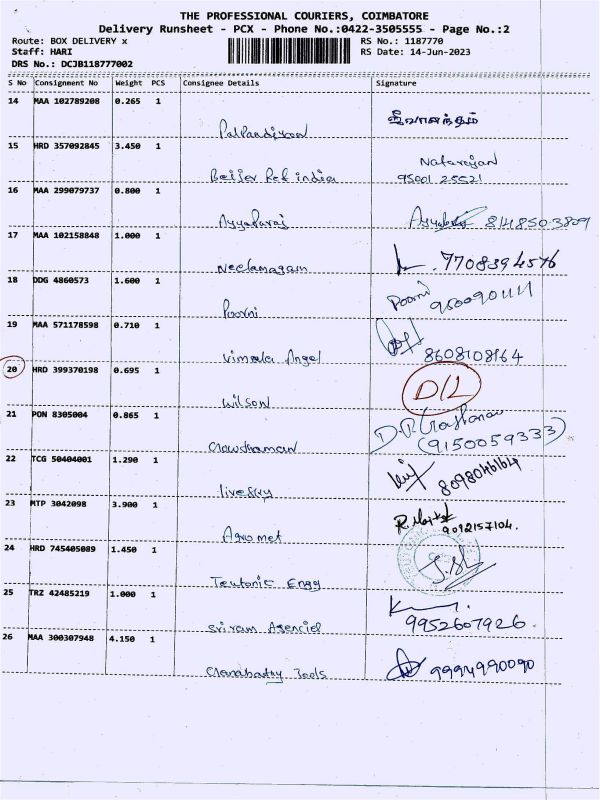 THE PROFESSIONAL COURIERS, COIMBATORE
Delivery Runsheet - PCX - Phone No.:0422-3505555 - Page No.:2
Route: BOX DELIVERY x RS No.: 1187770
Staff: HARI RS Date: 14-Jun-2023
DRS No.: DCJB118777002
S No Consignment No Weight PCS Consignee Details Signature
14 MAA 102789208 0.265 1
Palpandiyan ஜீவானந்தம்
15 HRD 357092845 3.450 1
Natarajan
Beijer Ref india 95001 25521
16 MAA 299079737 0.800 1
Ayyaparaj 8148503809
17 MAA 102158848 1.000 1
Neelamagam 7708394576
18 DDG 4860573 1.600 1
Poorni
Poorni
19 MAA 571178598 0.710 1
Vimala Angel 8608108164
20 HRD 399370198 0.695 1
D/L
Wilson
21 PON 8305004 0.865 1
(9150059333)
22 TCG 50404001 1.290 1
8098046164
23 MTP 3042098 3.900 1
9092157104.
Agromet
24 HRD 745405089 1.450 1
Teutonic Engg
25 TRZ 42485219 1.000 1
Sriram Agencies 9952607926.
26 MAA 300307948 4.150 1
Tools 9994990090